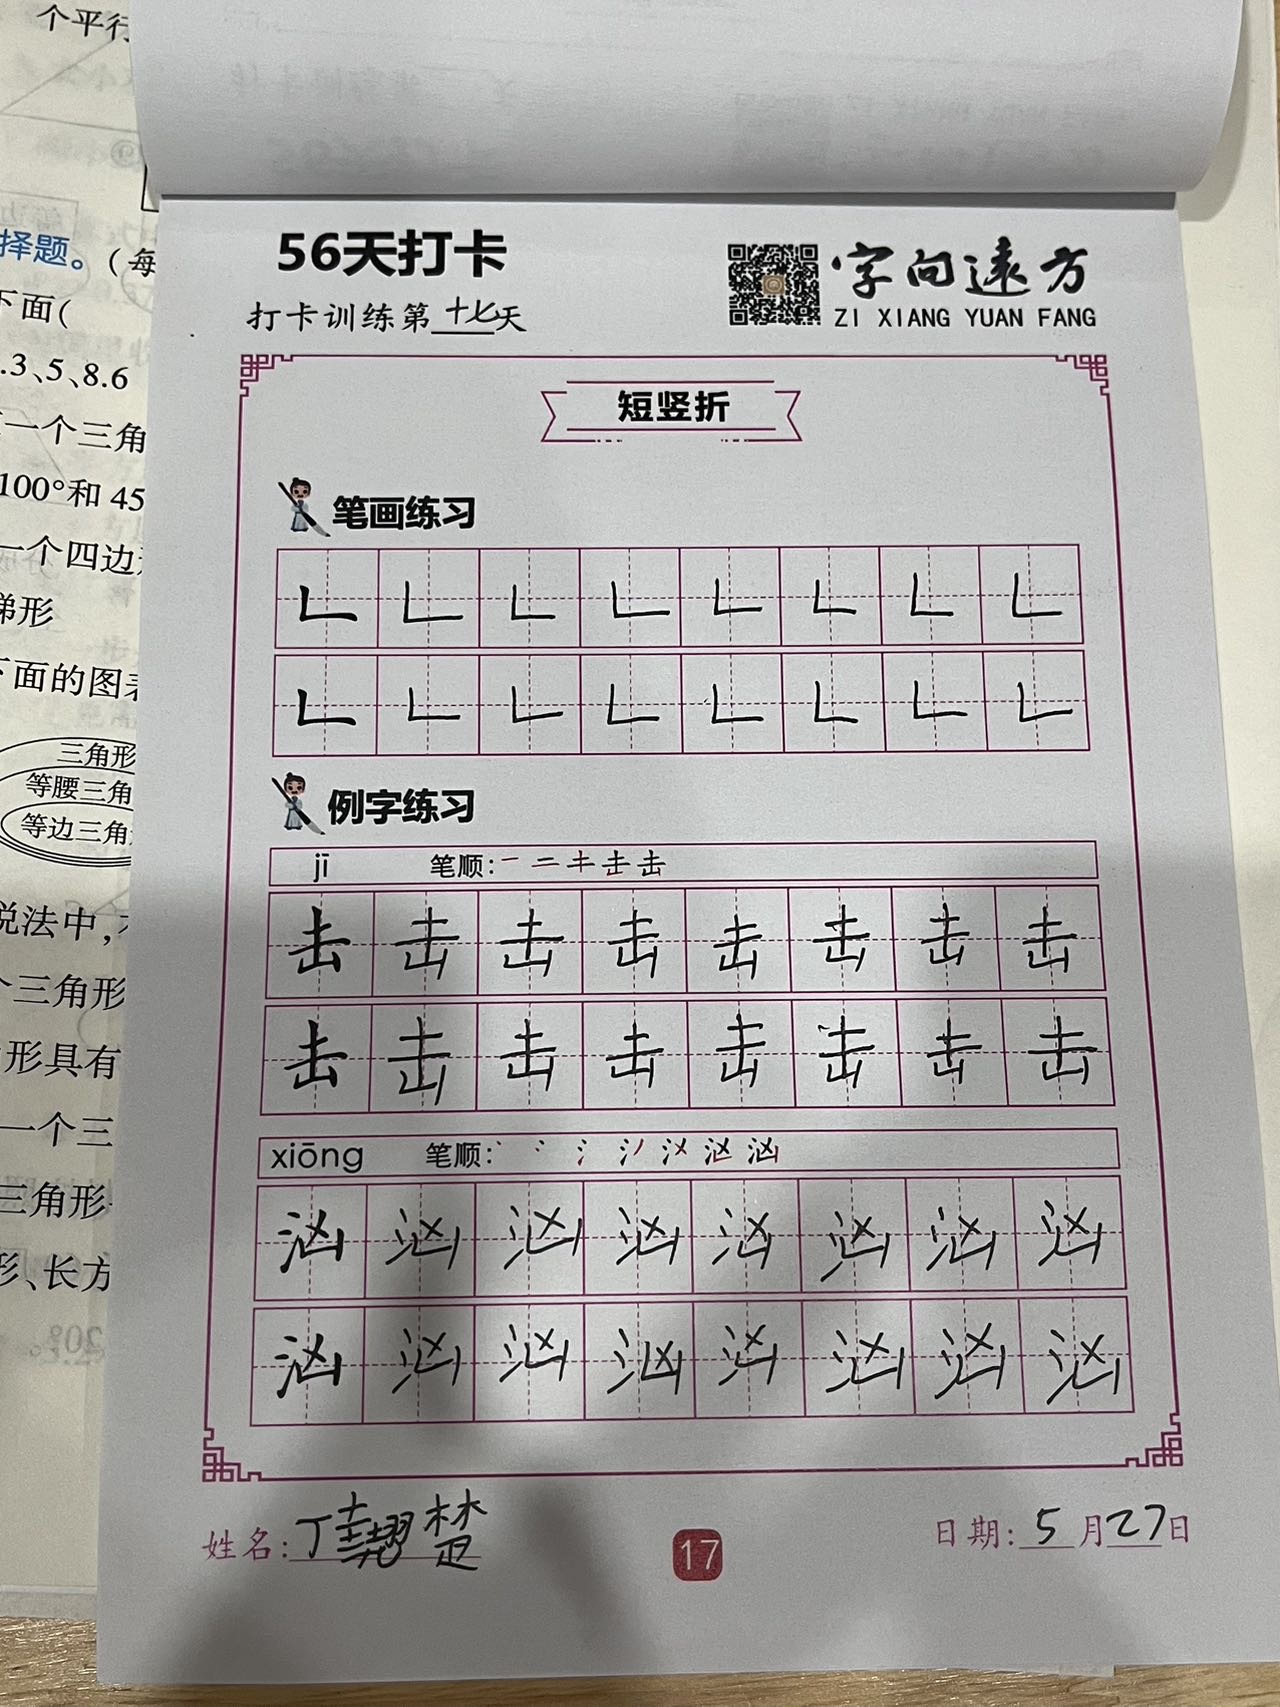 个平行
择题。(每
下面(
.3、5、8.6
一个三角
100°和45
一个四边
梯形
下面的图
三角形
等腰三角
等边三角
说法中,
个三角形
形具有
一个三
三角形
形、长方
56天打卡
打卡训练第十七天
字向遠方
ZI XIANG YUAN FANG
短竖折
笔画练习
例字练习
jī 笔顺:
击 击 击 击 击 击 击 击
击 击 击 击 击 击 击 击
xiōng 笔顺:
汹 汹 汹 汹 汹 汹 汹 汹
汹 汹 汹 汹 汹 汹 汹 汹
姓名:丁 楚
17
日期:5月27日